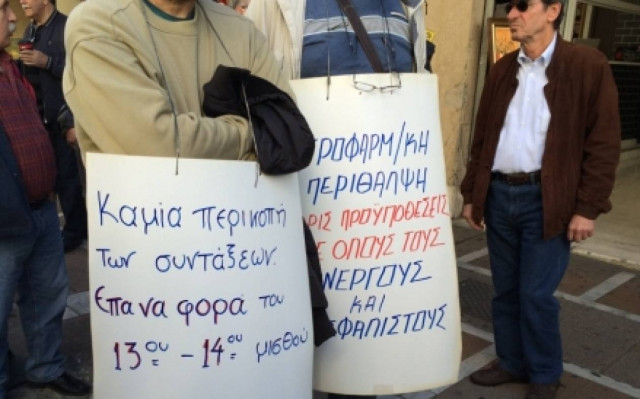 Καμία περικοπή
των συντάξεων.
Επαναφορά του
13ου - 14ου μισθού
ΡΟΦΑΡΜ/ΚΗ
ΠΕΡΙΘΑΛΨΗ
ΡΙΣ ΠΡΟΫΠΟΘΕΣΕΙΣ
Ε ΟΛΟΥΣ ΤΟΥΣ
ΝΕΡΓΟΥΣ
ΚΑΙ
ΣΦΑΛΙΣΤΟΥΣ